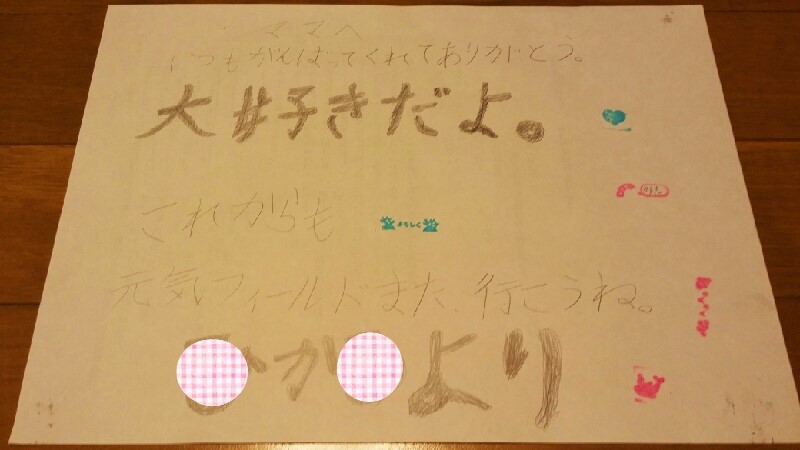 ママへ
いつもがんばってくれてありがとう。
大好きだよ。
これからも
よろしく
元気フィールドまた、行こうね。
か より